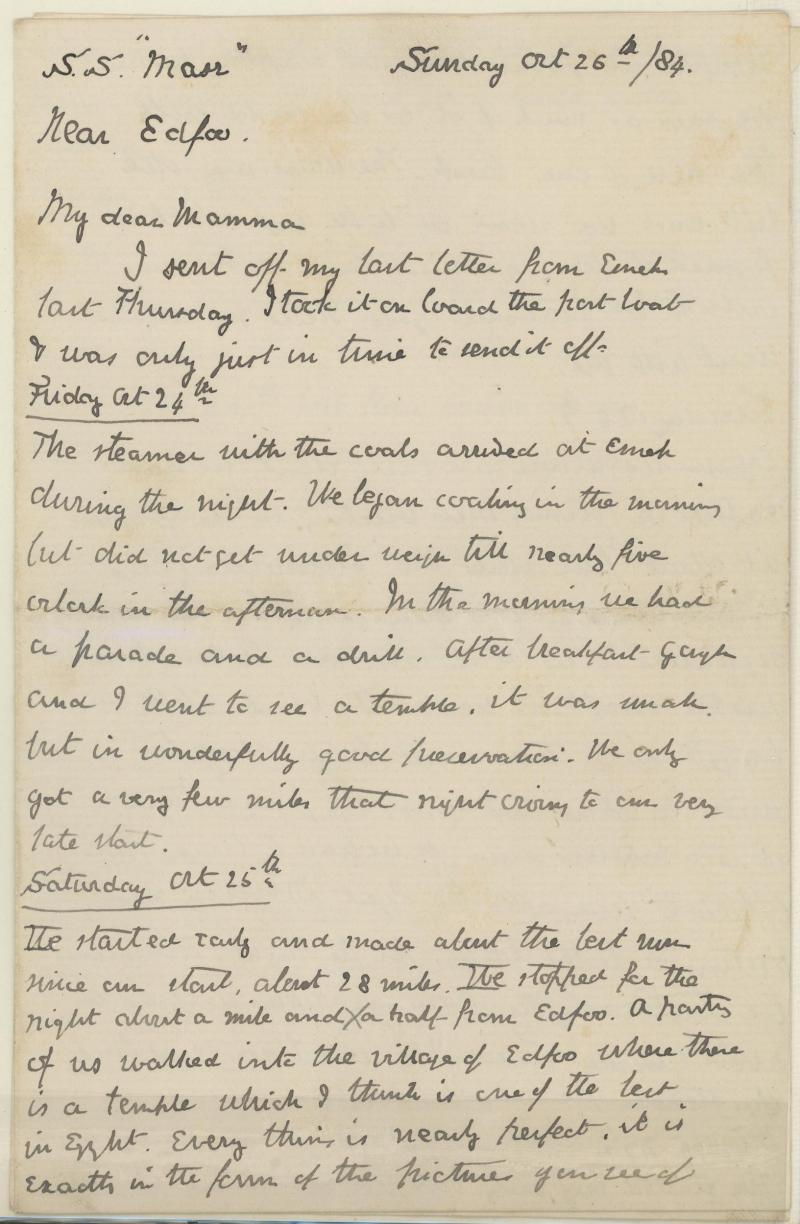 S.S. "Masr" Sunday Oct 26th/84.
Near Edfoo.
My dear Mamma
I sent off my last letter from Esneh
last Thursday. I took it on board the post boat
& was only just in time to send it off.
Friday Oct 24th
The steamer with the coals arrived at Esneh
during the night. We began coaling in the morning
but did not get under weigh till nearly five
oclock in the afternoon. In the morning we had
a parade and a drill. After breakfast
and I went to see a temple, it was small
but in wonderfully good preservation. We only
got a very few miles that night owing to our very
late start.
Saturday Oct 25th
We started early and made about the best run
since our start, about 28 miles. We stopped for the
night about a mile and a half from Edfoo. A party
of us walked into the village of Edfoo where there
is a temple which I think is one of the best
in Egypt. Every thing is nearly perfect, it is
exactly in the form of the pictures you see of